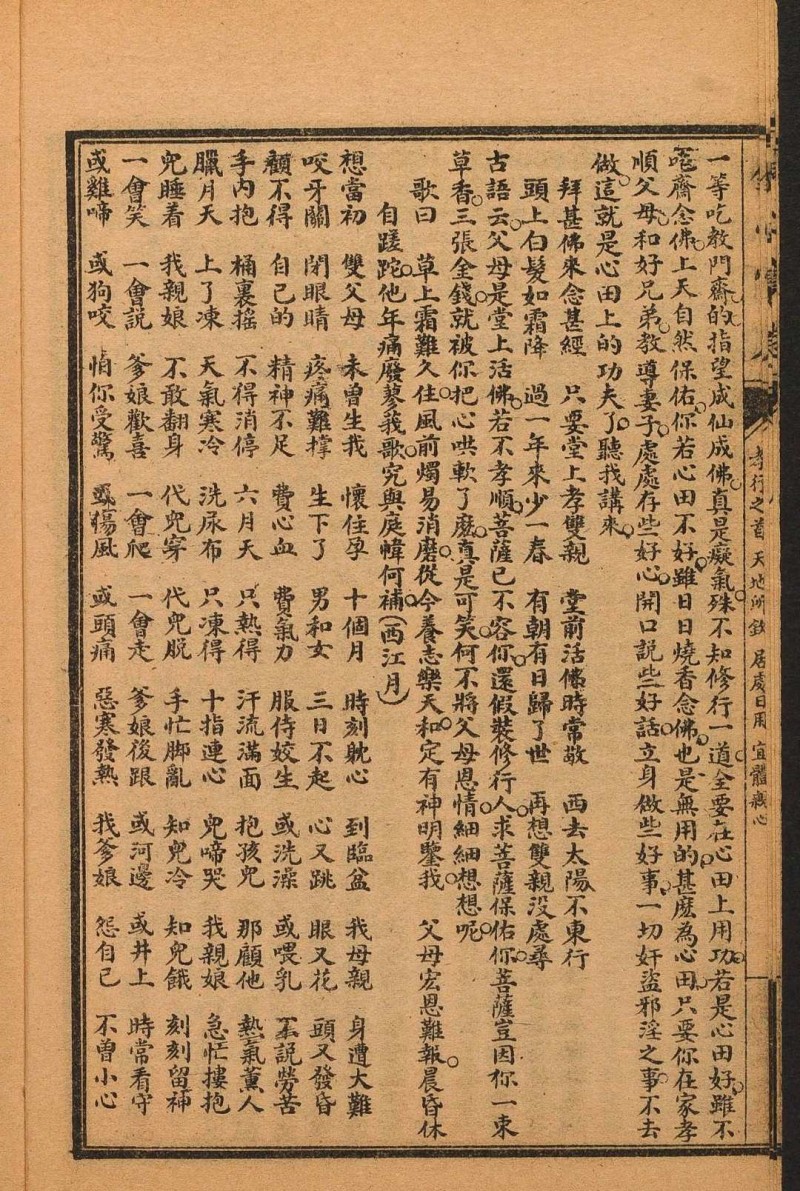 孝行之首 天地所欽 居處日用 宜體親心
一等吃教門齋的指望成仙成佛真是癡氣殊不知修行一道全要在心田上用功若是心田好雖不
吃齋念佛上天自然保佑你若心田不好雖日日燒香念佛也是無用的甚麽為心田只要你在家孝
順父母和好兄弟教導妻子處處存些好心開口説些好話立身做些好事一切奸盜邪淫之事不去
做這就是心田上的功夫了聽我講來
拜甚佛來念甚經 只要堂上孝雙親 堂前活佛時常敬 西去太陽不東行
頭上白髮如霜降 過一年來少一春 有朝有日歸了世 再想雙親没處尋
古語云父母是堂上活佛若不孝順菩薩已不容你還假裝修行人求菩薩保佑你菩薩豈因你一束
草香三張金錢就被你把心哄軟了麽真是可笑何不將父母恩情細細想想呢
歌曰 草上霜難久住風前燭易消磨從今養志樂天和定有神明鑒我 父母宏恩難報晨昏休
自蹉跎他年痛廢蓼莪歌究與庭幃何補(西江月)
想當初 雙父母 未曾生我 懷住孕 十個月 時刻躭心 到臨盆 我母親 身遭大難
咬牙關 閉眼睛 疼痛難撑 生下了 男和女 三日不起 心又跳 眼又花 頭又發昏
顧不得 自己的 精神不足 費心血 費氣力 服侍姣生 或洗澡 或喂乳 不説勞苦
手內抱 桶裏摇 不得消停 六月天 只熱得 汗流滿面 抱孩兒 那顧他 熱氣薰人
臘月天 上了凍 天氣寒冷 洗尿布 只凍得 十指連心 兒啼哭 我親娘 急忙摟抱
兒睡着 我親娘 不敢翻身 代兒穿 代兒脱 手忙脚亂 知兒冷 知兒餓 刻刻留神
一會笑 一會説 爹娘歡喜 一會爬 一會走 爹娘後跟 或河邊 或井上 時常看守
或雞啼 或狗咬 怕你受驚 或傷風 或頭痛 惡寒發熱 我爹娘 怨自己 不曾小心